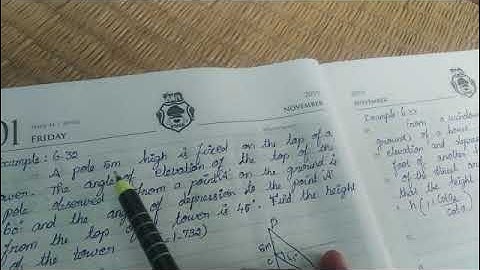 01
FRIDAY
2019
NOVEMBER
Example : 6.32
A pole 5m high is fixed on the top of a
tower. The angle of elevation of the top of the
pole observed from a point 'A' on the ground is
60° and the angle of depression to the point 'A'
from the top of tower is 45°. Find the height
of the tower. 1.732)
P
5m
C
NOVEMBER
Example : 6.33
From a window
ground) of a house
elevation and depress
foot of another
of the street are
that the height
h(1+ cotθ2